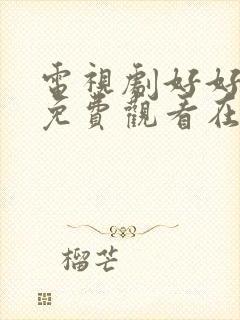 電視劇好好
免費觀看在
榴芒